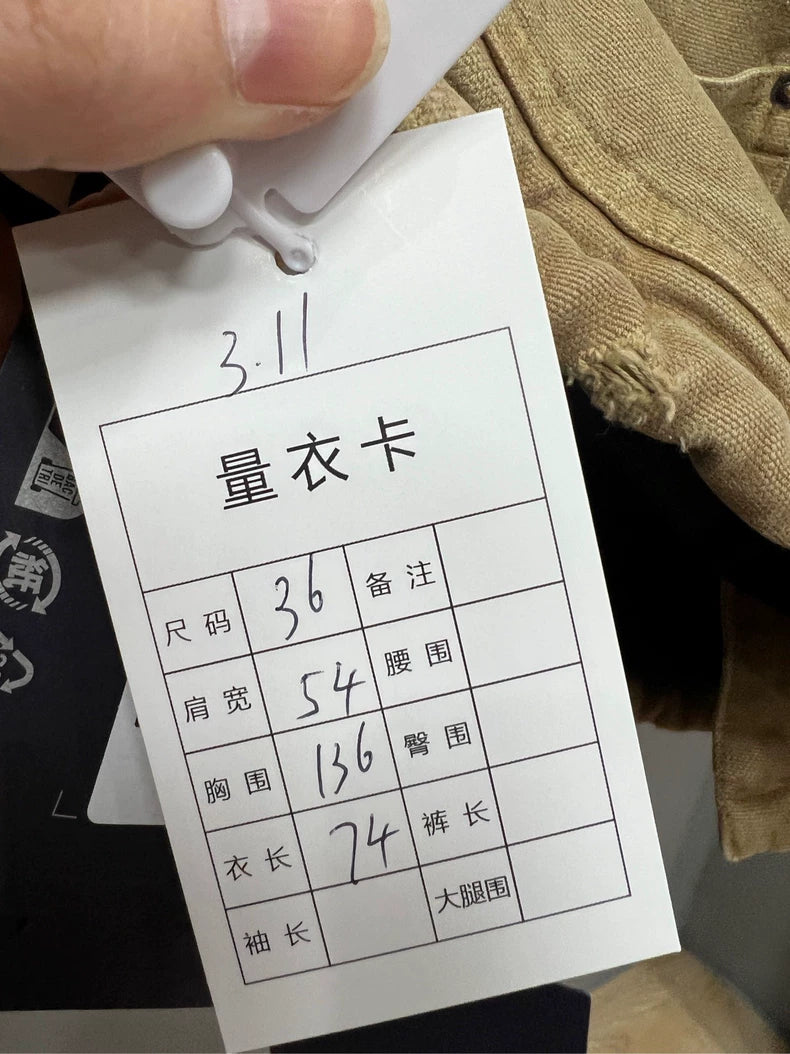 3.11
量衣卡
尺码 36 备注
肩宽 54 腰围
胸围 136 臀围
衣长 74 裤长
袖长 大腿围
紙